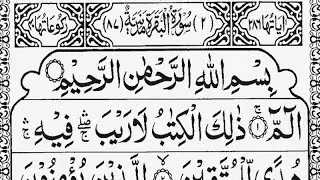 اٰيَاتُهَا ٢٨٦ (٢) سُوْرَةُ الْبَقَرَةِ مَدَنِيَّةٌ (٨٧) رُكُوْعَاتُهَا
بِسْمِ اللّٰهِ الرَّحْمٰنِ الرَّحِيْمِ
الٓمّٓ ۚ ذٰلِكَ الْكِتٰبُ لَا رَيْبَ ۛ فِيْهِ ۛ
هُدًى لِّلْمُتَّقِيْنَ الَّذِيْنَ يُؤْمِنُوْنَ